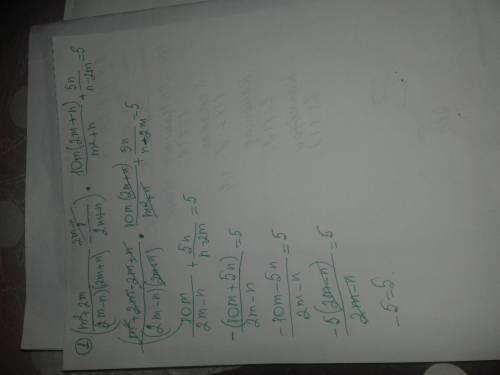 ① (m²+2m / (2m-n)(2m+n) - 2m-n / 2m+n) · 10m(2m+n) / m²+n + 5n / n-2m = 5
(m²+2m-2m+n / (2m-n)(2m+n)) · 10m(2m+n) / m²+n + 5n / n-2m = 5
10m / 2m-n + 5n / n-2m = 5
-(10m+5n) / 2m-n = 5
-10m-5n / 2m-n = 5
-5(2m-n) / 2m-n = 5
-5=5